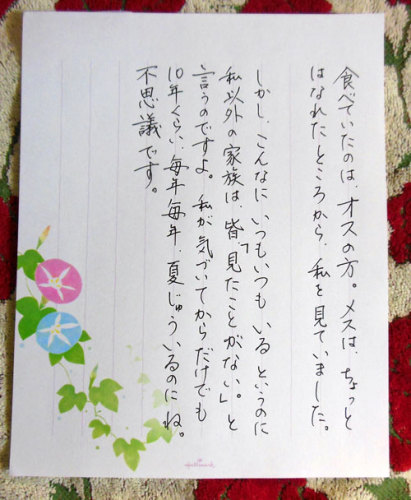 食べていたのは、オスの方。メスは、ちょっと
はなれたところから、私を見ていました。
しかし、こんなに いつもいつも いる というのに
私以外の家族は、皆「見たことがない。」と
言うのですよ。私が気づいてからだけでも
10年くらい、毎年毎年、夏じゅういるのにね。
不思議です。
Hallmark